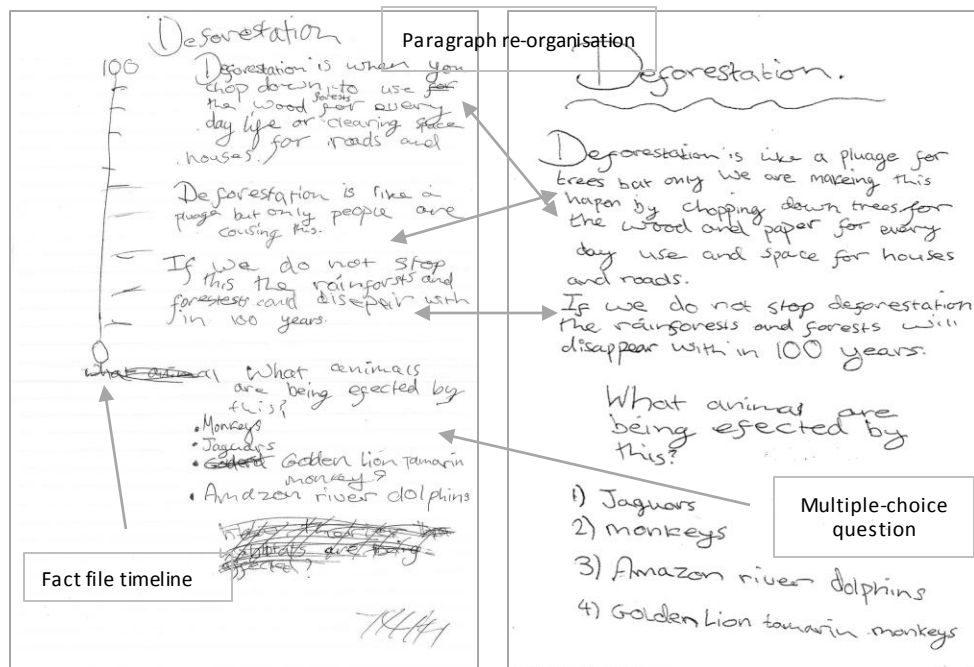 Paragraph re-organisation
Deforestation
100
Deforestation is when you
chop down to use for
forests
the wood for every
day life or clearing space
for roads and
houses.
Deforestation is like a
pluage but only people are
cousing this.
If we do not stop
this the rainforsts and
forestests could disepair with
in 100 years.
0
what animal What animals
are being efected by
this?
• Monkeys
• Jaguars
• Golden Lion Tamarin
monkey?
• Amazon river dolphins
Fact file timeline
Deforestation.
Deforestation is like a pluage for
trees but only we are makeing this
hapen by chopping down trees for
the wood and paper for every
day use and space for houses
and roads.
If we do not stop deforestation
the rainforests and forests will
disappear with in 100 years.
What animal are
being efected by
this?
1) Jaguars
2) monkeys
3) Amazon river dolphins
4) Golden Lion tamarin monkeys
Multiple-choice
question